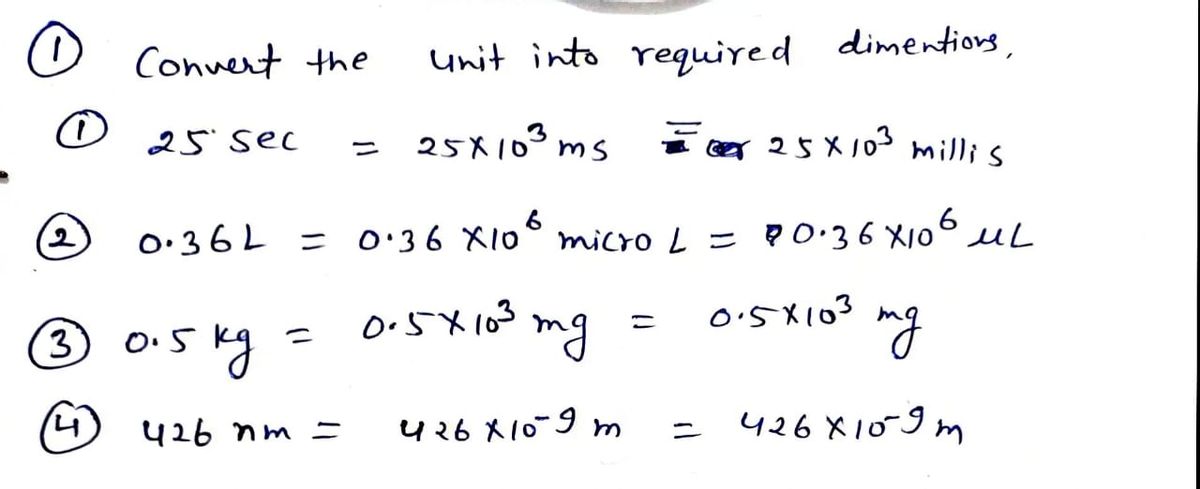 ① Convert the unit into required dimentions,
① 25 sec = 25×10³ ms = 25×10³ millis
② 0.36L = 0.36 ×10⁶ micro L = 0.36×10⁶ μL
③ 0.5 kg = 0.5×10³ mg = 0.5×10³ mg
④ 426 nm = 426×10⁻⁹ m = 426×10⁻⁹ m